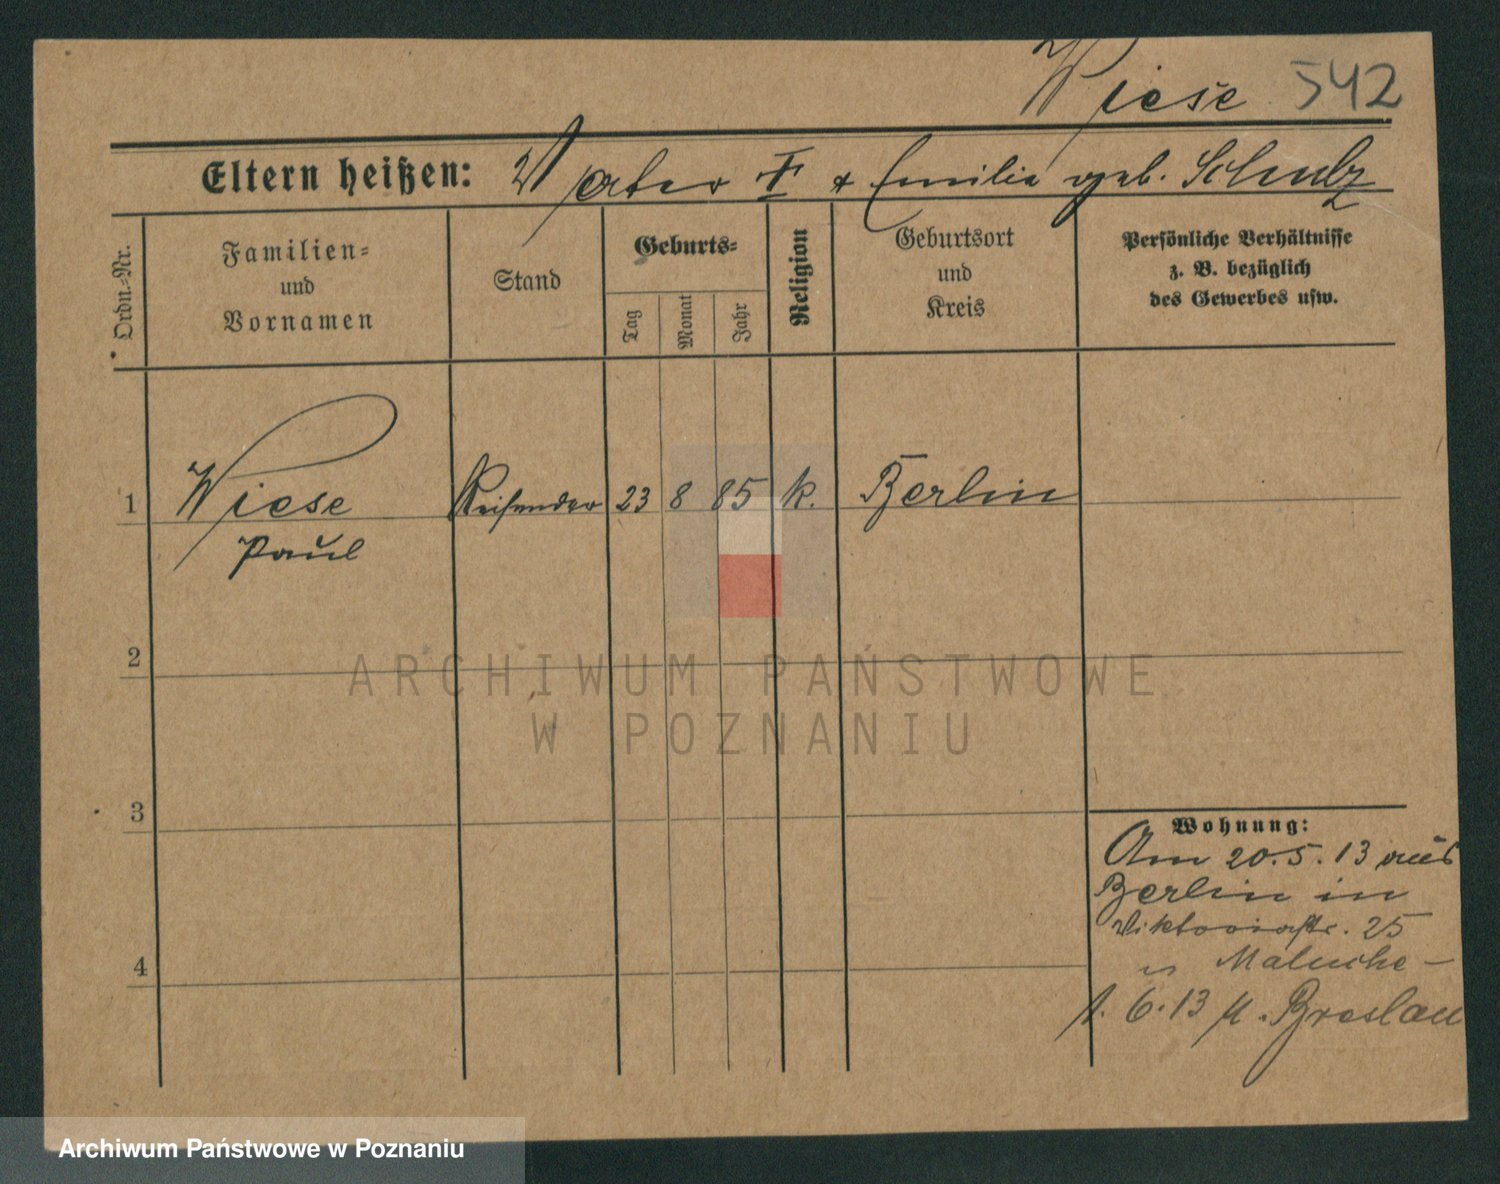 Wiese 542
Eltern heißen: Vater † & Emilie geb. Schulz
Ordn.-Nr.
Familien-
und
Vornamen
Stand
Geburts-
Tag
Monat
Jahr
Religion
Geburtsort
und
Kreis
Persönliche Verhältnisse
z. B. bezüglich
des Gewerbes usw.
1 Wiese Reisender 23 8 85 k. Berlin
Paul
2
3
4
Wohnung:
Am 20.5.13 aus
Berlin in
Viktoriastr. 25
Maluche –
1.6.13 n. Breslau
ARCHIWUM PAŃSTWOWE
W POZNANIU
Archiwum Państwowe w Poznaniu